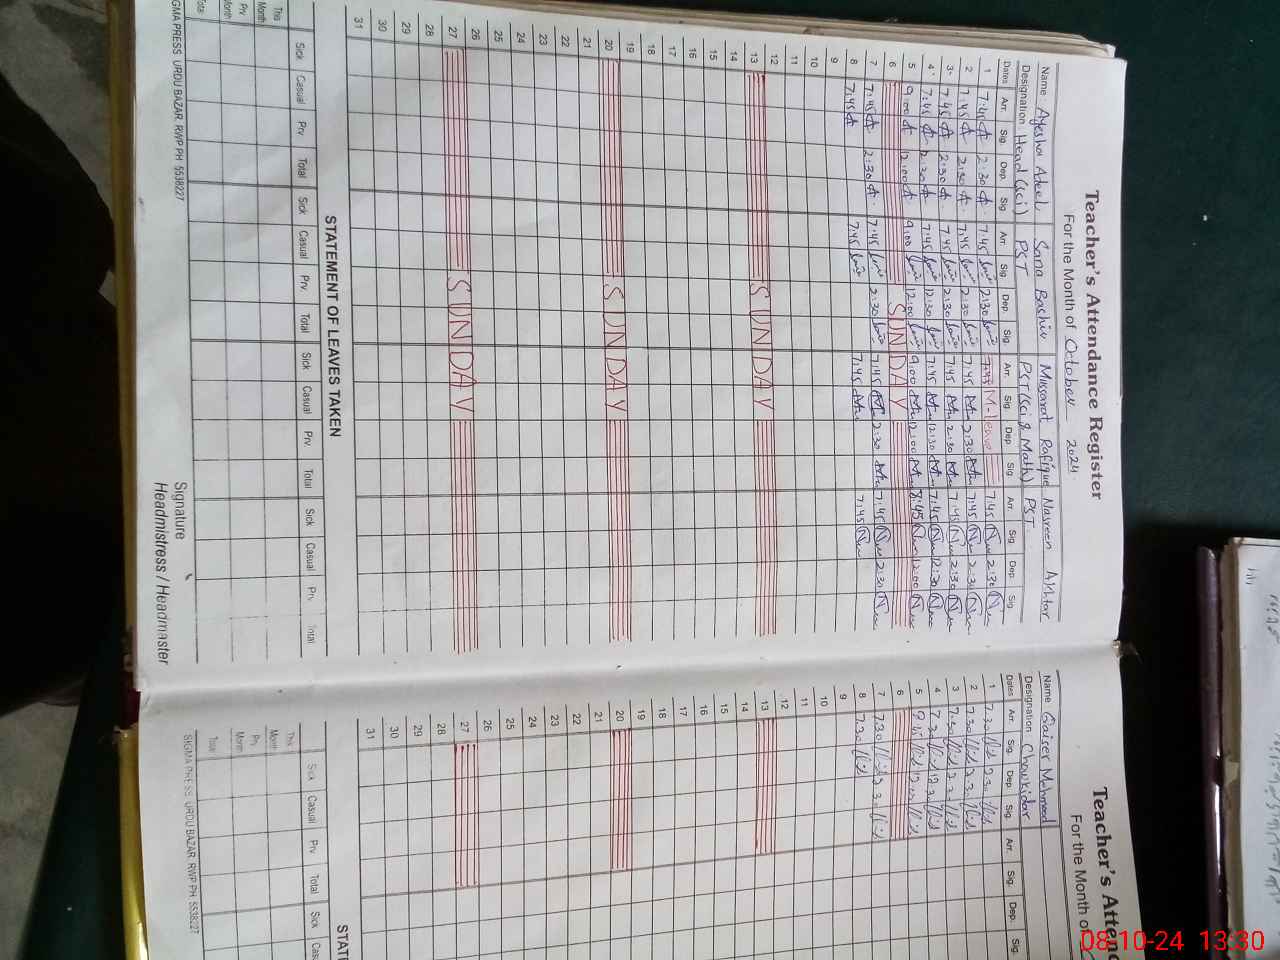 Teacher's Attendance Register
For the Month of October 2024
Name: Ayesha Adeel Sana Bashir Mussarat Rafique Nasreen Akhtar
Designation: Head (Sci) PST PST (Sci & Math) PST
Dates Arr. Sig. Dep. Sig. Arr. Sig. Dep. Sig. Arr. Sig. Dep. Sig. Arr. Sig. Dep. Sig.
1 7:45 2:30 7:45 2:30 7:45 M-leave 7:45 2:30
2 7:45 2:30 7:45 2:30 7:45 2:30 7:45 2:30
3 7:45 2:30 7:45 2:30 7:45 2:30 7:45 2:30
4 7:45 12:30 7:45 12:30 7:45 12:30 7:45 12:30
5 9:00 12:00 9:00 12:00 9:00 12:00 8:45 12:00
6 SUNDAY
7 7:45 2:30 7:45 2:30 7:45 2:30 7:45 2:30
8 7:45 7:45 7:45 7:45
9
10
11
12
13 SUNDAY
14
15
16
17
18
19
20 SUNDAY
21
22
23
24
25
26
27 SUNDAY
28
29
30
31
STATEMENT OF LEAVES TAKEN
Sick Casual Prv Total Sick Casual Prv Total Sick Casual Prv Total Sick Casual Prv Total
This Month
Prv Month
Total
Signature
Headmistress / Headmaster
SIGMA PRESS URDU BAZAR. RWP PH: 5538227
Teacher's Atten
For the Month of
Name Qaiser Mehmood
Designation Chowkidar
Dates Arr. Sig. Dep. Sig. Arr. Sig. Dep. Sig.
1 7.30 2.30
2 7.30 2.30
3 7.30 2.30
4 7.30 12.30
5
6
7 7.30 2.30
8 7.30
9
10
11
12
13
14
15
16
17
18
19
20
21
22
23
24
25
26
27
28
29
30
31
STATE
Sick Casual Prv Total Sick
This Month
Prv Month
Total
SIGMA PRESS URDU BAZAR. RWP PH: 5538227
08-10-24 13:30